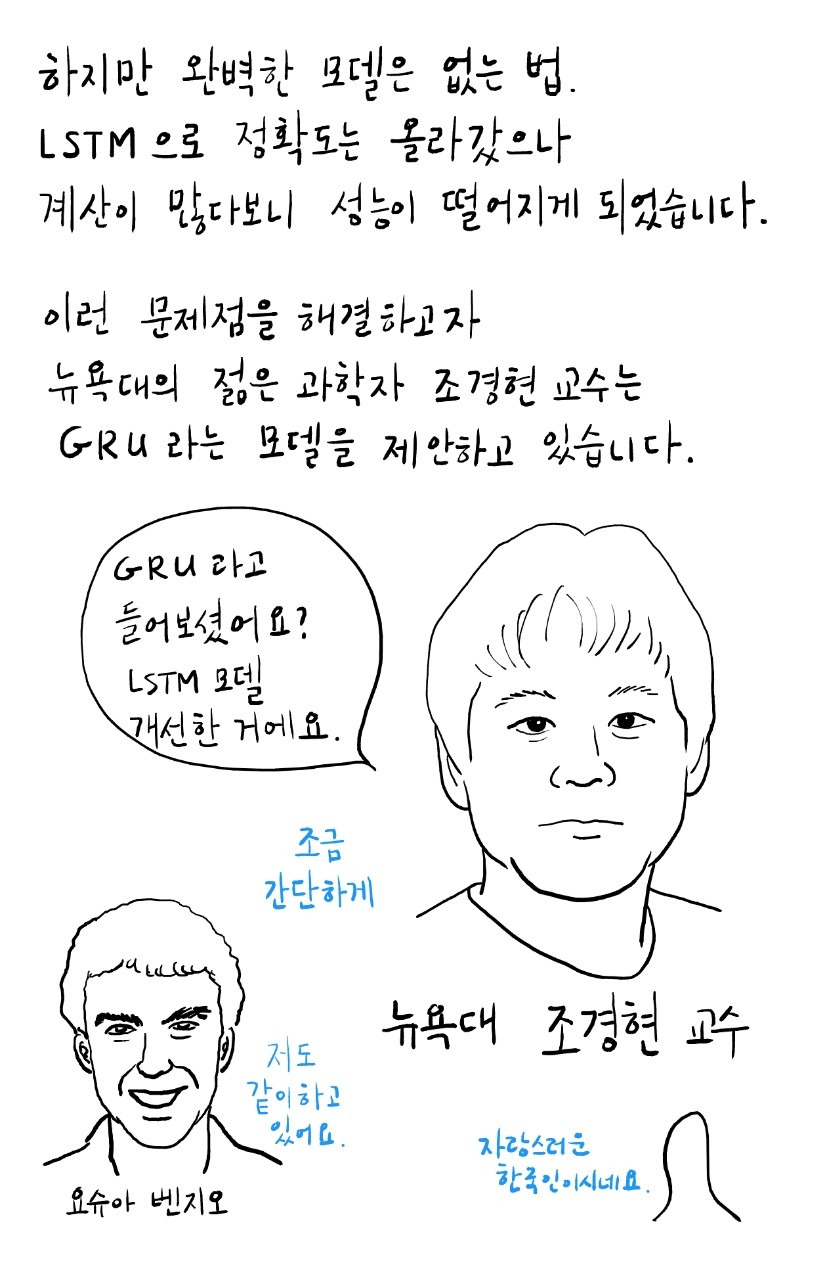 하지만 완벽한 모델은 없는 법.
LSTM으로 정확도는 올라갔으나
계산이 많다보니 성능이 떨어지게 되었습니다.
이런 문제점을 해결하고자
뉴욕대의 젊은 과학자 조경현 교수는
GRU라는 모델을 제안하고 있습니다.
GRU라고
들어보셨어요?
LSTM 모델
개선한 거에요.
조금
간단하게
뉴욕대 조경현 교수
저도
같이하고
있어요.
요슈아 벤지오
자랑스러운
한국인이시네요.